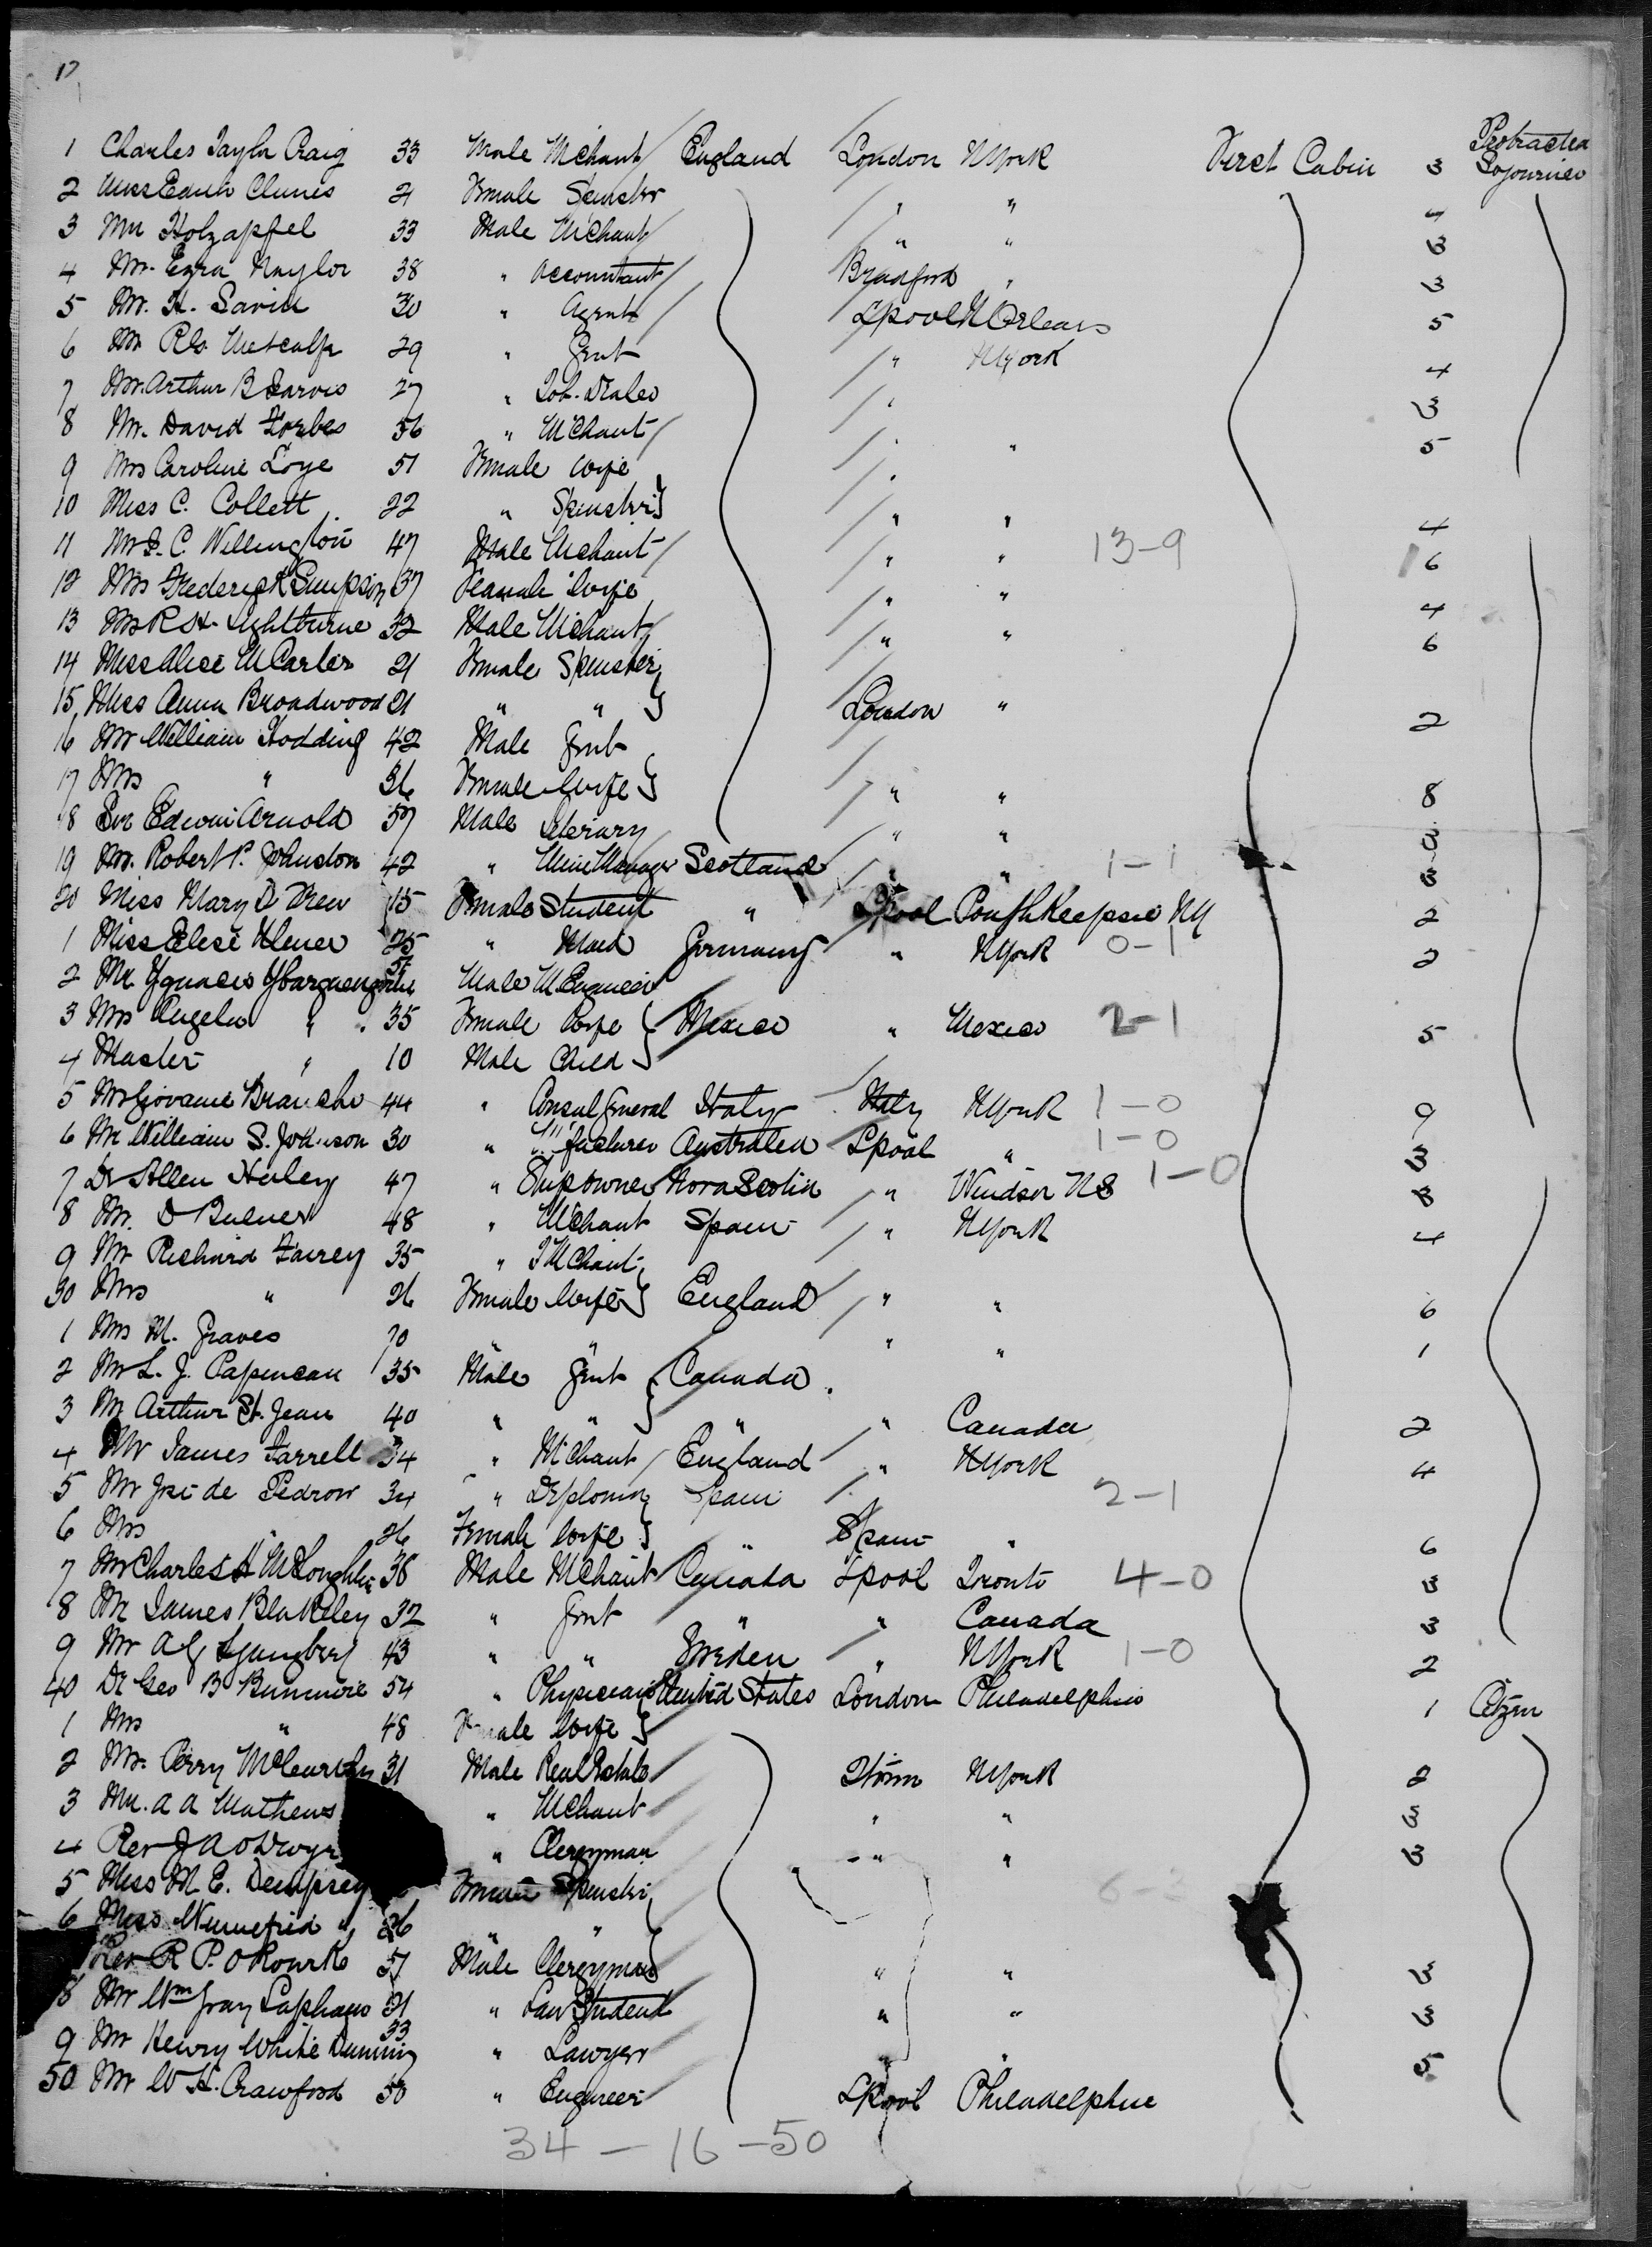 17
1 Charles Taylor Craig 33 Male Mchant England London NYork First Cabin 3 Protracted Sojourner
2 Miss Edith Clunis 21 Female Spinster " "
3 Mr Holzapfel 33 Male Mchant " " 3
4 Mr. Ezra Naylor 38 " Accountant Bradford " 3
5 Mr. H. Savill 30 " Agent Lpool NOrleans 5
6 Mr Metcalfe 29 " Gent " NYork
7 Mr. Arthur B Jarvis 27 " Tob. Dealer " 4
8 Mr. David Forbes 56 " Mchant " " 3
9 Mrs Caroline Loye 51 Female Wife " 5
10 Miss C. Collett 22 " Spinster " "
11 Mr C. Wellington 47 Male Mchant " " 13-9 4
12 Mrs Frederick Simpson 37 Female Wife " " 6
13 Mr R H. Lightburne 32 Male Mchant " " 4
14 Miss Alice McCarter 21 Female Spinster 6
15 Miss Anna Broadwood 21 " " London "
16 Mr William Hodding 42 Male Gent 2
17 Mrs " 36 Female Wife " "
18 Sir Edwin Arnold 57 Male Literary " " 8
19 Mr. Robert P. Johnston 42 " Mine Manager Scotland " " 1-1 3
20 Miss Mary D Drew 15 Female Student " Lpool Poughkeepsie NY 3
1 Miss Elise 25 " Maid Germany " NYork 0-1 2
2 Mr Ygnacio 51 Male M Engineer 2
3 Mrs Angela " 35 Female Wife Mexico " Mexico 2-1
4 Master " 10 Male Child 5
5 Mr Giovanni Branchi 44 " Consul General Italy Italy NYork 1-0
6 Mr William S. Johnson 30 " facturer Australia Lpool " 1-0 9
7 Dr Allen Haley 47 " Shipowner Nova Scotia " Windsor NS 1-0 3
8 Mr. D 48 " Mchant Spain " NYork 3
9 Mr Richard Fairey 35 " Mchant 4
30 Mrs " 26 Female Wife England " "
1 Mrs M. Graves 70 " " " " 6
2 Mr L. J. Papineau 35 Male Gent Canada 1
3 Mr Arthur St. Jean 40 " " " " Canada
4 Mr James Farrell 34 " Mchant England " NYork 2
5 Mr José de Pedroso 34 " Diplomat Spain 2-1 4
6 Mrs 26 Female Wife " Spain "
7 Mr Charles A McLoughlin 38 Male Mchant Canada Lpool Toronto 4-0 6
8 Mr James Blakeley 32 " Gent " " Canada 3
9 Mr A G 43 " " Sweden " NYork 1-0 3
40 Dr Geo B 54 " Physician United States London Philadelphia 2
1 Mrs " 48 Female Wife 1 Citzen
2 Mr. Perry 31 Male Real Estate NYork
3 Mr. A A Mathews " Mchant " " 2
4 Rev J A ODwyer " Clergyman " " 3
5 Miss M E. Dempsey Female Spinster 3
6 Miss Winnefrid " 26 "
Rev R P. ORourke 51 Male Clergyman " "
8 Mr Wm Gray Lapham 21 " Law Student " " 3
9 Mr Henry White 33 " Lawyer " " 3
50 Mr W H. Crawford 50 " Engineer Lpool Philadelphia 5
34 - 16 - 50